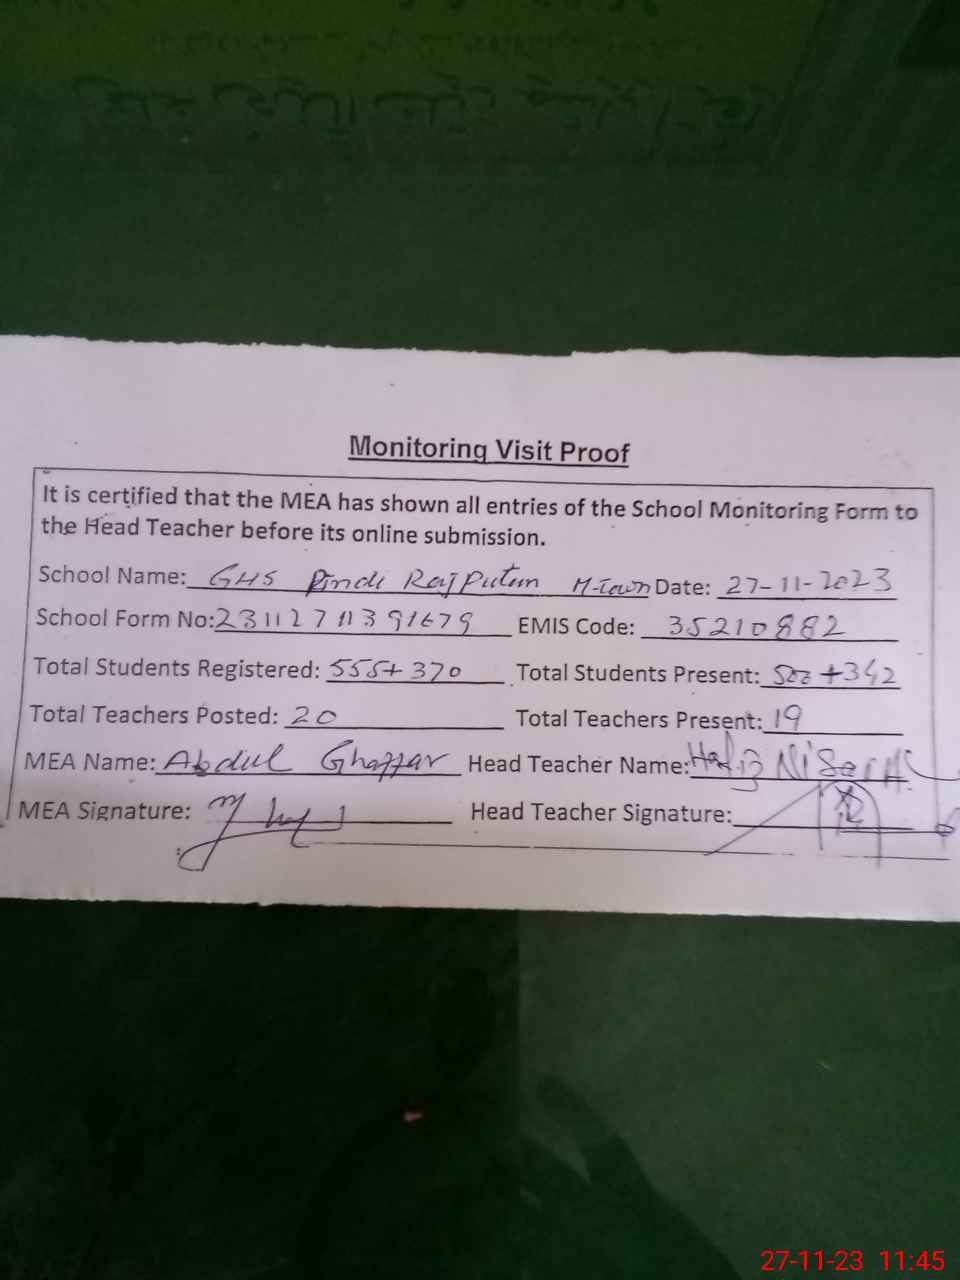 Monitoring Visit Proof
It is certified that the MEA has shown all entries of the School Monitoring Form to
the Head Teacher before its online submission.
School Name: GHS Pindi Rajputan M-Town Date: 27-11-2023
School Form No: 23112711391679 EMIS Code: 35210882
Total Students Registered: 555+370 Total Students Present: 500+342
Total Teachers Posted: 20 Total Teachers Present: 19
MEA Name: Abdul Ghaffar Head Teacher Name: Hafiz Nisar
MEA Signature: Head Teacher Signature:
27-11-23 11:45